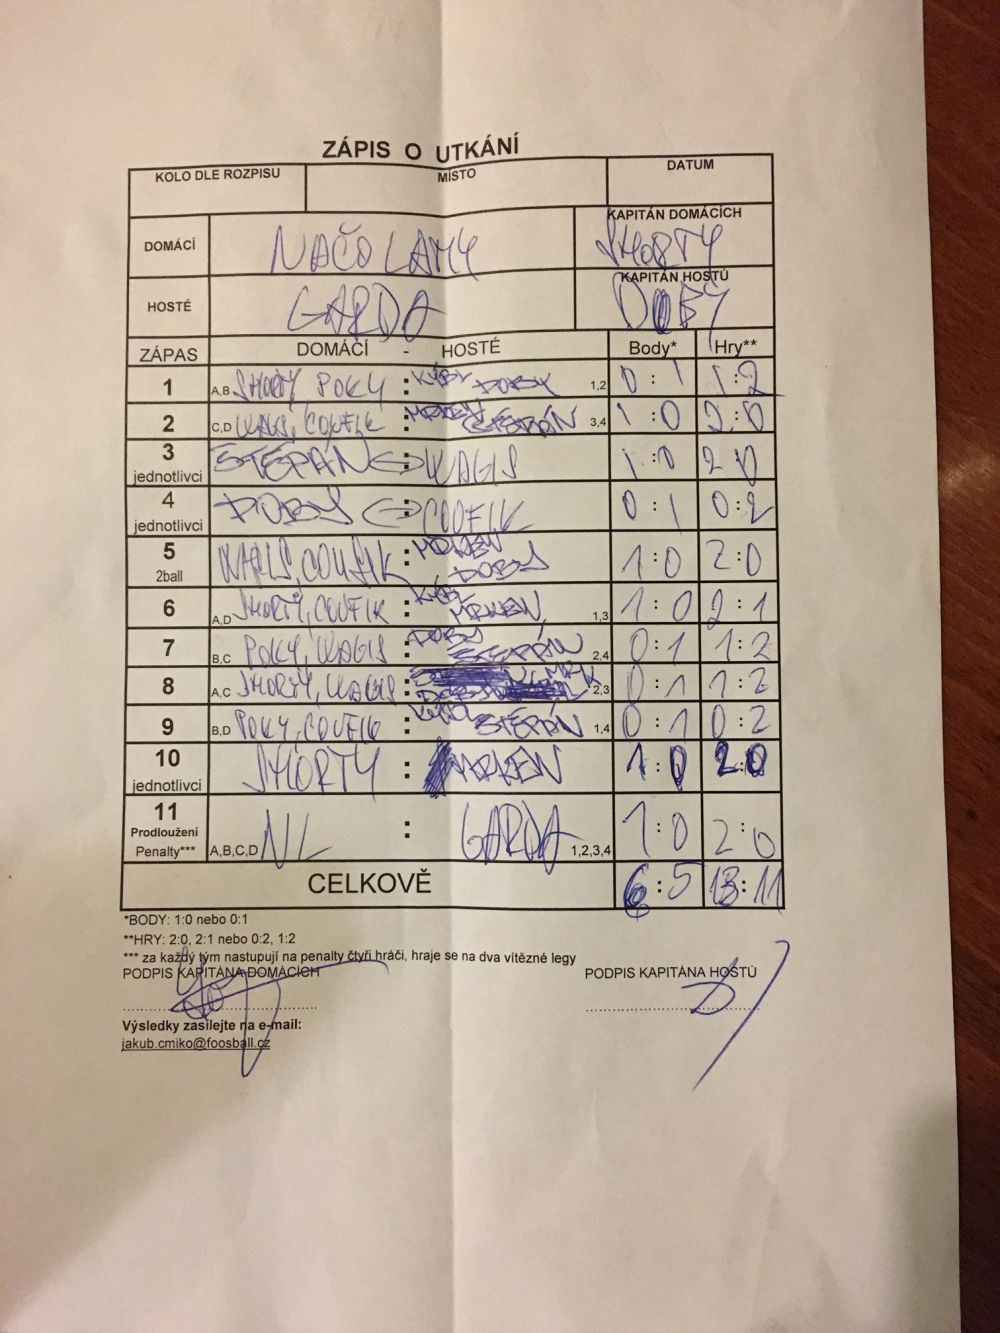 ZÁPIS O UTKÁNÍ
KOLO DLE ROZPISU MÍSTO DATUM
DOMÁCÍ NAČO LAMY KAPITÁN DOMÁCÍCH SHORTY
HOSTÉ GARDA KAPITÁN HOSTŮ DOBY
ZÁPAS DOMÁCÍ - HOSTÉ Body* Hry**
1 A,B SHORTY POKY : DOBY 1,2 0 : 1 1 : 2
2 C,D WAGIS, COUFIK : MRKEW ŠTĚPÁN 3,4 1 : 0 2 : 0
3 jednotlivci ŠTĚPÁN : WAGIS 1 : 0 2 : 0
4 jednotlivci DOBY : COUFIK 0 : 1 0 : 2
5 2ball WAGIS, COUFIK : MRKEW DOBY 1 : 0 2 : 0
6 A,D SHORTY, COUFIK : MRKEW, 1,3 1 : 0 2 : 1
7 B,C POKY, WAGIS : DOBY ŠTĚPÁN 2,4 0 : 1 1 : 2
8 A,C SHORTY, WAGIS : 2,3 0 : 1 1 : 2
9 B,D POKY, COUFIK : ŠTĚPÁN 1,4 0 : 1 0 : 2
10 jednotlivci SHORTY : MRKEW 1 : 0 2 : 0
11 Prodloužení Penalty*** A,B,C,D NL : GARDA 1,2,3,4 1 : 0 2 : 0
CELKOVĚ 6 : 5 13 : 11
*BODY: 1:0 nebo 0:1
**HRY: 2:0, 2:1 nebo 0:2, 1:2
*** za každý tým nastupují na penalty čtyři hráči, hraje se na dva vítězné legy
PODPIS KAPITÁNA DOMÁCÍCH PODPIS KAPITÁNA HOSTŮ
Výsledky zasílejte na e-mail:
jakub.cmiko@foosball.cz